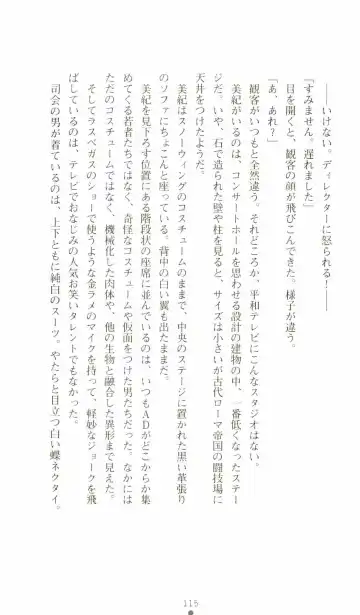 ――いけない。ディレクターに怒られる！――
『すみません。遅れました』
目を開くと、観客の顔が飛びこんできた。様子が違う。
「あ、あれ？」
観客がいつもと全然違う。それどころか、平和テレビにこんなスタジオはない。
美紀がいるのは、コンサートホールを思わせる設計の建物の中、一番低くなったステー
ジだ。いや、石で造られた壁や柱を見ると、サイズは小さいが古代ローマ帝国の闘技場に
天井をつけたようだ。
美紀はスノーウィングのコスチュームのままで、中央のステージに置かれた黒い革張り
のソファにちょこんと座っている。背中の白い翼も出たままだ。
美紀を見下ろす位置にある階段状の座席に並んでいるのは、いつもＡＤがどこからか集
めてくる若者たちではなく、奇怪なコスチュームや仮面をつけた男たちだった。なかには
ただのコスチュームではなく、機械化した肉体や、他の生物と融合した異形まで見えた。
そしてラスベガスのショーで使うような金ラメのマイクを持って、軽妙なジョークを飛
ばしているのは、テレビでおなじみの人気お笑いタレントでもなかった。
司会の男が着ているのは、上下ともに純白のスーツ。やたらと目立つ白い蝶ネクタイ。
115